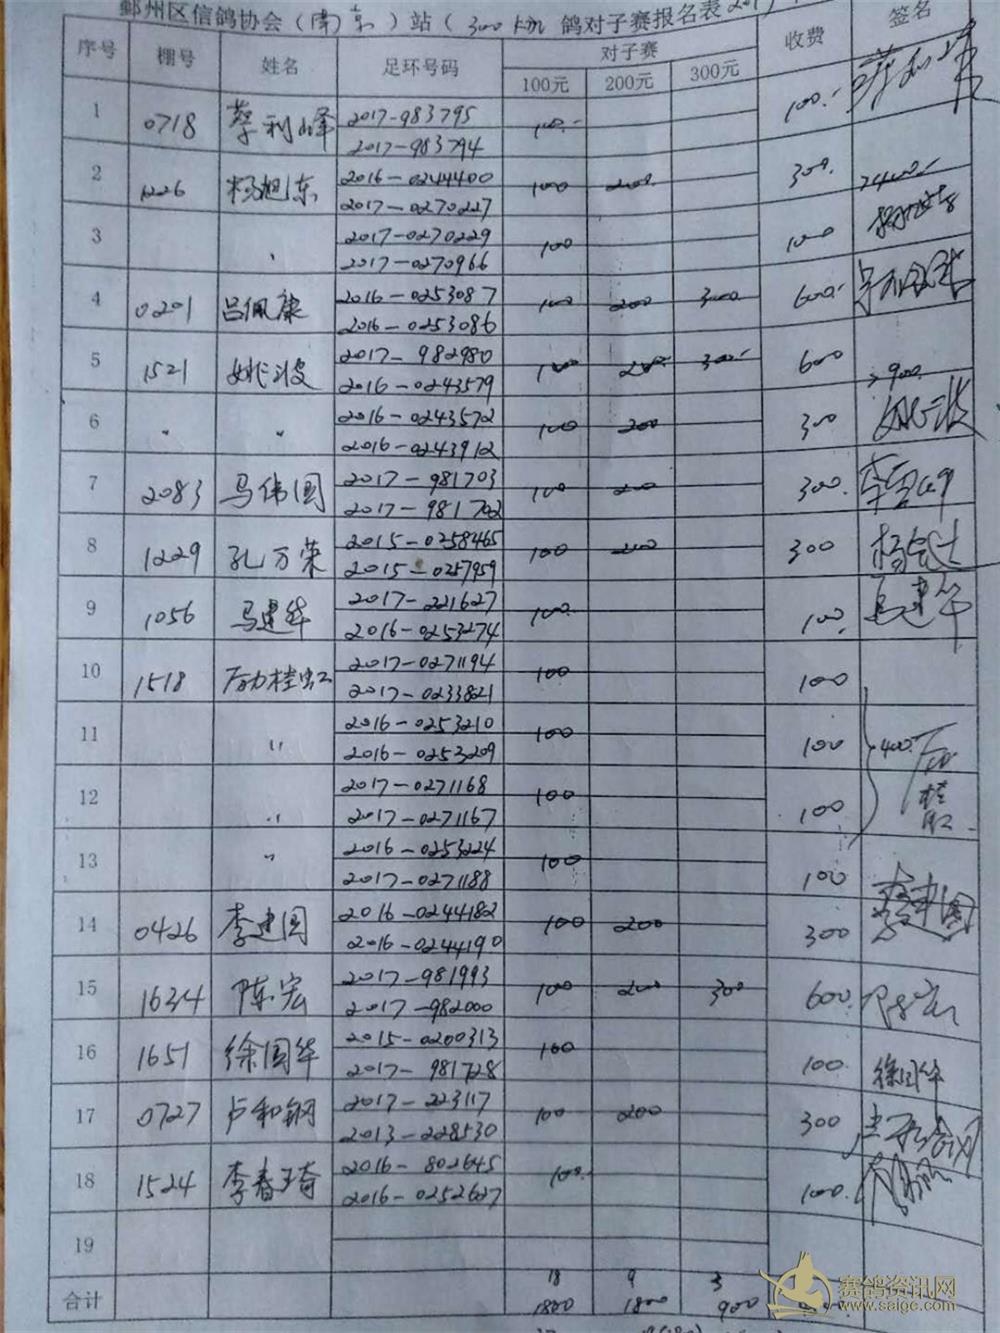 鄞州区信鸽协会（南京）站（300km 鸽对子赛报名表
序号 棚号 姓名 足环号码 对子赛 收费 签名
100元 200元 300元
1 0718 蔡利峰 2017-983795 100.- 100.-
2017-983794
2 1226 杨旭东 2016-0244400 100 200. 300.
2017-0270227
3 〃 2017-0270229 100 100
2017-0270966
4 0201 吕佩康 2016-0253087 100 200 300 600.-
2016-0253086
5 1521 姚波 2017-982980 100 200 300 600
2016-0243579 900
6 〃 〃 2016-0243572 100 200 300
2016-0243912
7 2083 马伟国 2017-981703 100 200 300.
2017-981702
8 1229 孔万荣 2015-0258465 100 200 300
2015-0257959
9 1056 马建华 2017-221627 100. 100. 马建华
2016-0253274
10 1518 励桂虹 2017-0271194 100 100
2017-0233821
11 〃 2016-0253210 100 100 400.
2016-0253209
12 〃 2017-0271168 100 100
2017-0271167
13 〃 2016-0253224 100 100
2017-0271188
14 0426 李建国 2016-0244182 100 200 300 李建国
2016-0244190
15 1634 陈宏 2017-981993 100 200 300 600. 陈宏
2017-982000
16 1651 徐国华 2015-0200313 100 100. 徐国华
2017-981728
17 0727 卢和钢 2017-223117 100 200 300 卢和钢
2013-228530
18 1524 李春琦 2016-802645 100. 100.
2016-0252627
19
合计 18 9 3
1800 1800 900
赛鸽资讯网
www.saige.com